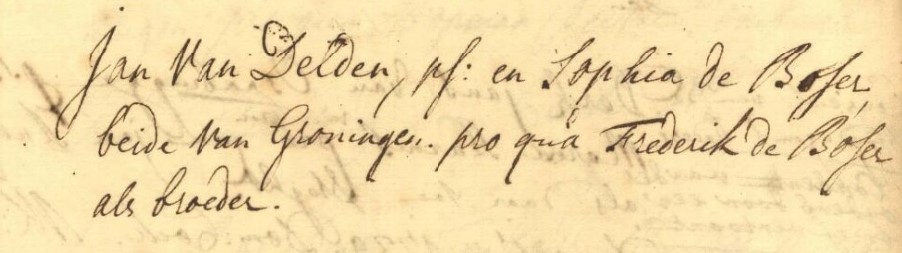 Jan Van Delden, ps: en Sophia de Boser,
beide van Groningen. pro qua Frederik de Boser
als broeder.